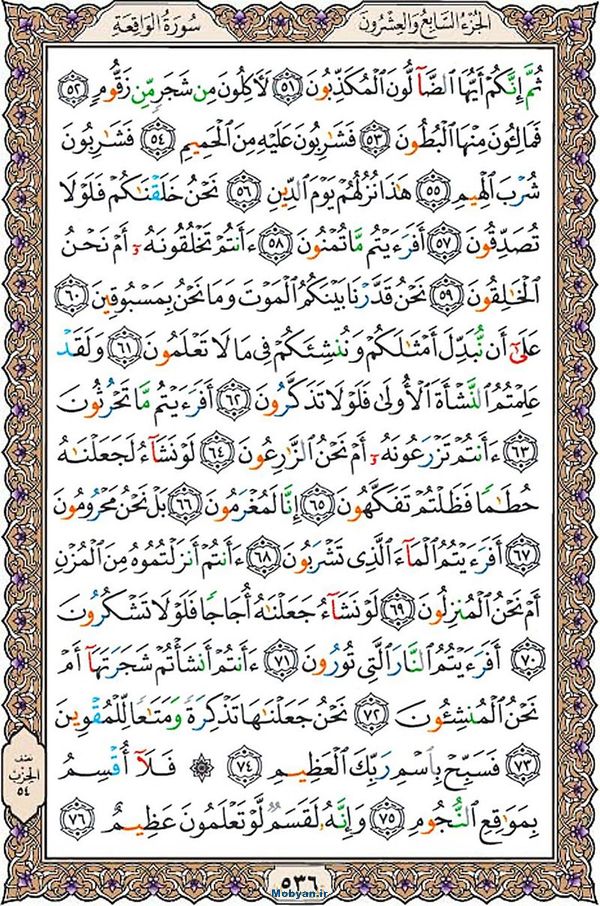 الجزء السابع والعشرون
سورة الواقعة
ثُمَّ إِنَّكُمْ أَيُّهَا الضَّآلُّونَ الْمُكَذِّبُونَ ٥١ لَأٓكِلُونَ مِن شَجَرٍ مِّن زَقُّومٍ ٥٢
فَمَالِـُٔونَ مِنْهَا الْبُطُونَ ٥٣ فَشَارِبُونَ عَلَيْهِ مِنَ الْحَمِيمِ ٥٤ فَشَارِبُونَ
شُرْبَ الْهِيمِ ٥٥ هَٰذَا نُزُلُهُمْ يَوْمَ الدِّينِ ٥٦ نَحْنُ خَلَقْنَاكُمْ فَلَوْلَا
تُصَدِّقُونَ ٥٧ أَفَرَءَيْتُم مَّا تُمْنُونَ ٥٨ ءَأَنتُمْ تَخْلُقُونَهُۥٓ أَمْ نَحْنُ
الْخَالِقُونَ ٥٩ نَحْنُ قَدَّرْنَا بَيْنَكُمُ الْمَوْتَ وَمَا نَحْنُ بِمَسْبُوقِينَ ٦٠
عَلَىٰٓ أَن نُّبَدِّلَ أَمْثَالَكُمْ وَنُنشِئَكُمْ فِي مَا لَا تَعْلَمُونَ ٦١ وَلَقَدْ
عَلِمْتُمُ النَّشْأَةَ الْأُولَىٰ فَلَوْلَا تَذَكَّرُونَ ٦٢ أَفَرَءَيْتُم مَّا تَحْرُثُونَ
٦٣ ءَأَنتُمْ تَزْرَعُونَهُۥٓ أَمْ نَحْنُ الزَّارِعُونَ ٦٤ لَوْ نَشَآءُ لَجَعَلْنَاهُ
حُطَامًا فَظَلْتُمْ تَفَكَّهُونَ ٦٥ إِنَّا لَمُغْرَمُونَ ٦٦ بَلْ نَحْنُ مَحْرُومُونَ
٦٧ أَفَرَءَيْتُمُ الْمَآءَ الَّذِي تَشْرَبُونَ ٦٨ ءَأَنتُمْ أَنزَلْتُمُوهُ مِنَ الْمُزْنِ
أَمْ نَحْنُ الْمُنزِلُونَ ٦٩ لَوْ نَشَآءُ جَعَلْنَاهُ أُجَاجًا فَلَوْلَا تَشْكُرُونَ
٧٠ أَفَرَءَيْتُمُ النَّارَ الَّتِي تُورُونَ ٧١ ءَأَنتُمْ أَنشَأْتُمْ شَجَرَتَهَآ أَمْ
نَحْنُ الْمُنشِـُٔونَ ٧٢ نَحْنُ جَعَلْنَاهَا تَذْكِرَةً وَمَتَاعًا لِّلْمُقْوِينَ
٧٣ فَسَبِّحْ بِاسْمِ رَبِّكَ الْعَظِيمِ ٧٤ ۞ فَلَآ أُقْسِمُ
بِمَوَاقِعِ النُّجُومِ ٧٥ وَإِنَّهُۥ لَقَسَمٌ لَّوْ تَعْلَمُونَ عَظِيمٌ ٧٦
نصف
الحزب
٥٤
٥٣٦
Mobyan.ir